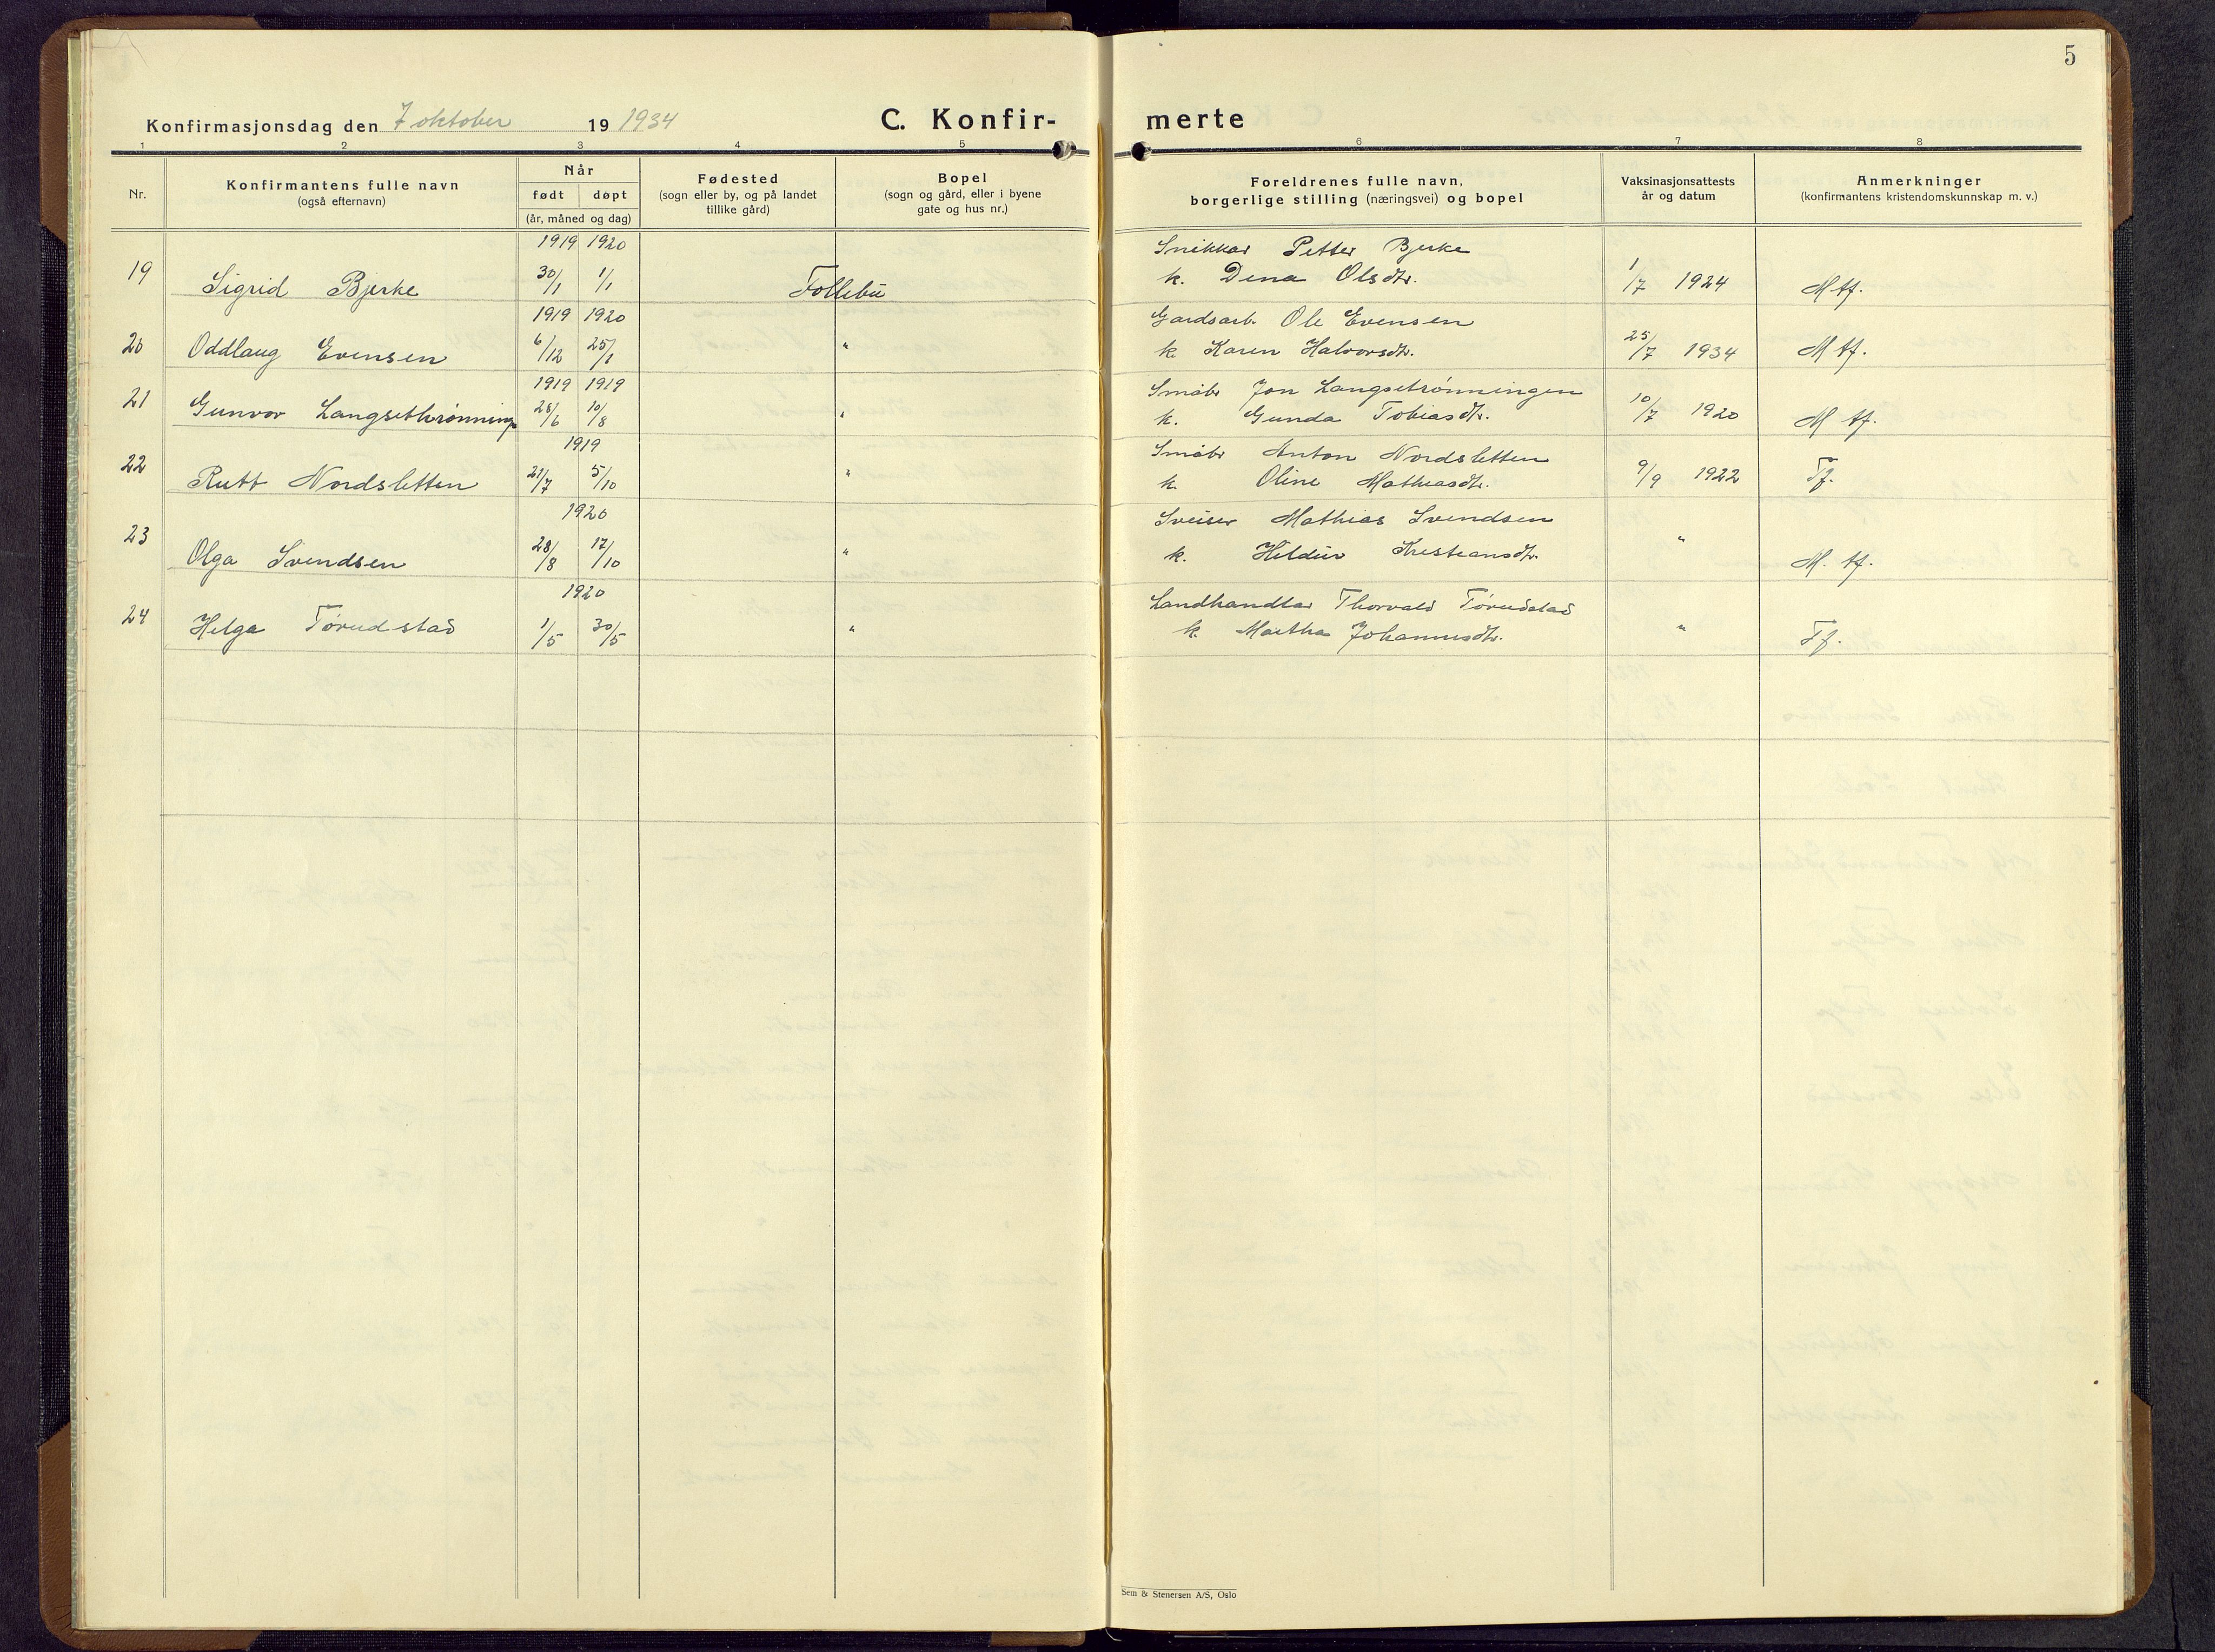 5
Konfirmasjonsdag den 7 oktober 19 1934
C. Konfir-
merte
1 2 3 4 5 6 7 8
Nr.
Konfirmantens fulle navn
(også efternavn)
Når
født døpt
(år, måned og dag)
Fødested
(sogn eller by, og på landet
tillike gård)
Bopel
(sogn og gård, eller i byene
gate og hus nr.)
Foreldrenes fulle navn,
borgerlige stilling (næringsvei) og bopel
Vaksinasjonsattests
år og datum
Anmerkninger
(konfirmantens kristendomskunnskap m. v.)
1919 1920 Snikkar Petter Bjerke
19 Sigrid Bjerke 30/1 1/1 Follebu k. Dena Olsdtr. 1/7 1924 M tf.
1919 1920 Gardsarb. Ole Evensen
20 Oddlaug Evensen 6/12 25/1 " k. Karen Halvorsdtr. 25/7 1934 M tf.
1919 1919 Småbr Jon Langsetrønningen
21 Gunvor Langsethrønning 28/6 10/8 " k. Gunda Tobiasdtr. 10/7 1920 M tf.
1919 Småbr Anton Nordsletten
22 Rutt Nordsletten 21/7 5/10 " k. Oline Mathiasdtr. 9/9 1922 Tf.
1920 Sveiser Mathias Svendsen
23 Olga Svendsen 28/8 17/10 " k. Hildur Kristiansdtr. " M. tf.
1920 Landhandlar Thorvald Tørudstad
24 Helga Tørudstad 1/5 30/5 " k. Martha Johannesdtr. " Tf.
Sem & Stenersen A/S, Oslo